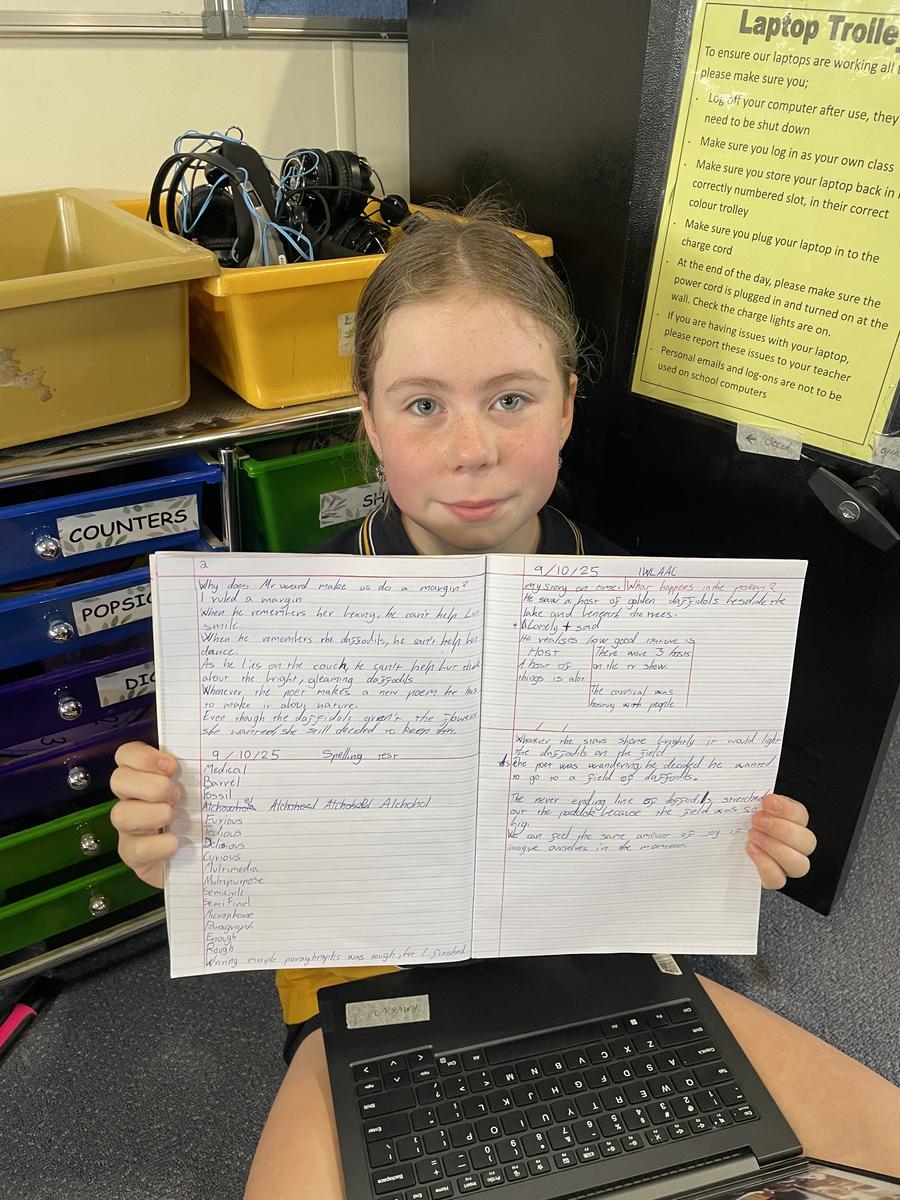 Laptop Trolley
To ensure our laptops are working all t
please make sure you;
· Log off your computer after use, they
need to be shut down
· Make sure you log in as your own class
· Make sure you store your laptop back in
correctly numbered slot, in their correct
colour trolley
· Make sure you plug your laptop in to the
charge cord
· At the end of the day, please make sure the
power cord is plugged in and turned on at the
wall. Check the charge lights are on.
· If you are having issues with your laptop,
please report these issues to your teacher
· Personal emails and log-ons are not to be
used on school computers
← closed
COUNTERS
SH
POPSIC
DIC
2
Why does Mr ward make us do a margin?
I ruled a margin
When he remembers her beauty, he can't help but
smile.
When he remembers the daffodils, he can't help but
dance.
As he lies on the couch, he can't help but think
about the bright, gleaming daffodils
Whenever the poet makes a new poem he has
to make it about nature.
Even though the daffidols aren't the flowers
she wanted, she still decided to keep them.
9/10/25 Spelling test
Medical
Barrel
Fossil
Alchohol
Furious
Tedious
Delisious
Curious
Multimedia
Multipurpose
Semicircle
Semi Final
Microphone
Paragraph
Enough
Rough
Writing multiple paraghraphs was rough, but I finished
9/10/25 IWLAAC
my story on time. What happens in the poem?
He saw a host of golden daffidols besdide the
lake and beneath the trees.
* Lonely + sad
He realises how good nature is
HOST There were 3 hosts
A host of on the tv show.
things is alot
The carnival was
hosting with people
/ /
Whenever the stars shone brightly it would light
the daffodils on the field
As the poet was wandering he decided he wanted
to go to a field of daffodils.
The never ending line of daffodils stretched
out the paddok because the field was so
big.
We can feel the same amount of joy if
imagine ourselves in the moment